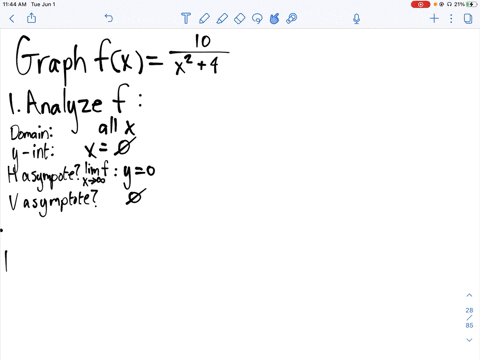 11:44 AM Tue Jun 1
21%
Graph f(x) = 10 / (x² + 4)
1. Analyze f :
Domain: all x
y-int: x = ∅
H asympote? lim x→∞ f : y = 0
V asymptote? ∅
28
/
85